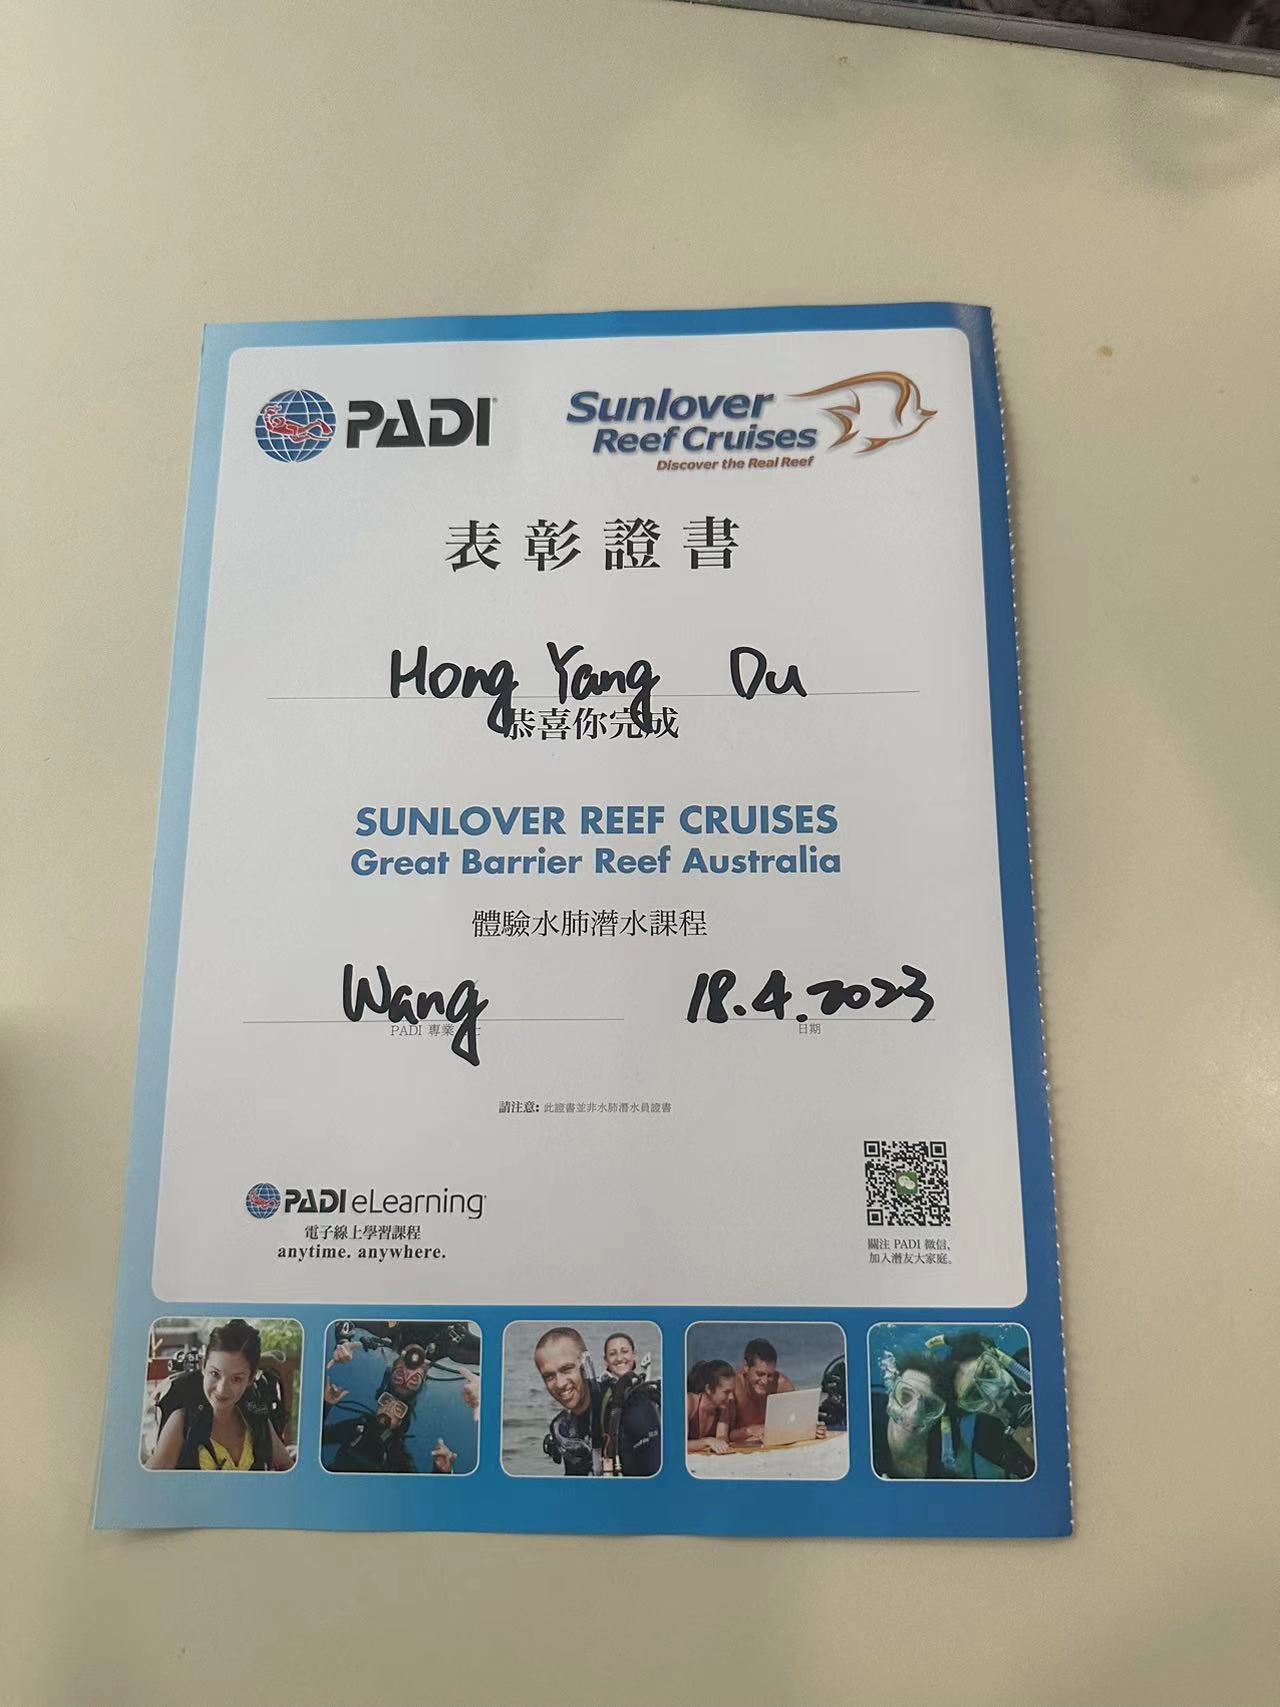 PADI
Sunlover
Reef Cruises
Discover the Real Reef
表彰證書
Hong Yang Du
恭喜你完成
SUNLOVER REEF CRUISES
Great Barrier Reef Australia
體驗水肺潛水課程
Wang 18.4.2023
PADI 專業 日期
請注意: 此證書並非水肺潛水員證書
PADI eLearning
電子線上學習課程
anytime. anywhere.
關注 PADI 微信,
加入潛友大家庭。